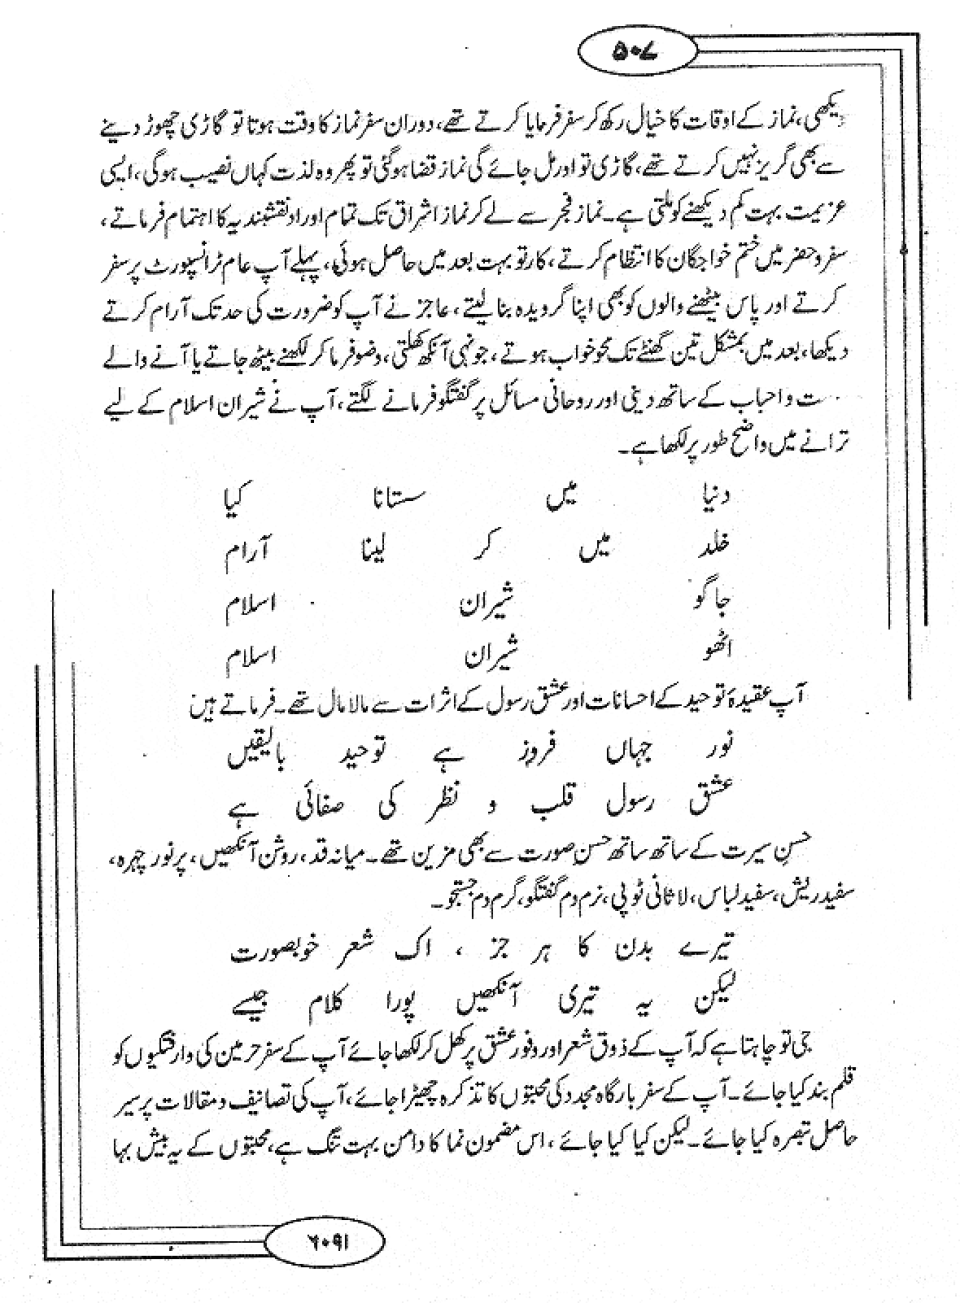 ۵۰۷
دیکھی، نماز کے اوقات کا خیال رکھ کر سفر فرمایا کرتے تھے، دوران سفر نماز کا وقت ہوتا تو گاڑی چھوڑ دینے
سے بھی گریز نہیں کرتے تھے، گاڑی تو اور مل جائے گی نماز قضا ہو گئی تو پھر وہ لذت کہاں نصیب ہوگی، ایسی
عزیمت بہت کم دیکھنے کو ملتی ہے۔ نماز فجر سے لے کر نماز اشراق تک تمام اوراد نقشبندیہ کا اہتمام فرماتے،
سفر و حضر میں ختم خواجگان کا انتظام کرتے، کار تو بہت بعد میں حاصل ہوئی، پہلے آپ عام ٹرانسپورٹ پر سفر
کرتے اور پاس بیٹھنے والوں کو بھی اپنا گرویدہ بنا لیتے، عاجز نے آپ کو ضرورت کی حد تک آرام کرتے
دیکھا، بعد میں بمشکل تین گھنٹے تک محو خواب ہوتے، جونہی آنکھ کھلتی، وضو فرما کر لکھنے بیٹھ جاتے یا آنے والے
ت و احباب کے ساتھ دینی اور روحانی مسائل پر گفتگو فرمانے لگتے، آپ نے شیران اسلام کے لیے
ترانے میں واضح طور پر لکھا ہے۔
دنیا میں ستانا کیا
خلد میں کر لینا آرام
جاگو شیران اسلام
اٹھو شیران اسلام
آپ عقیدۂ توحید کے احسانات اور عشق رسول کے اثرات سے مالا مال تھے۔ فرماتے ہیں
نور جہاں فروز ہے توحید بالیقیں
عشق رسول قلب و نظر کی صفائی ہے
حسنِ سیرت کے ساتھ ساتھ حسن صورت سے بھی مزین تھے۔ میانہ قد، روشن آنکھیں، پر نور چہرہ،
سفید ریش، سفید لباس، لاثانی ٹوپی، نرم دم گفتگو، گرم دم جستجو۔
تیرے بدن کا ہر جز ، اک شعر خوبصورت
لیکن یہ تیری آنکھیں پورا کلام جیسے
جی تو چاہتا ہے کہ آپ کے ذوق شعر اور وفور عشق پر کھل کر لکھا جائے آپ کے سفر حرمین کی وارفتگیوں کو
قلم بند کیا جائے۔ آپ کے سفر بارگاہ مجدد کی محبتوں کا تذکرہ چھیڑا جائے، آپ کی تصانیف و مقالات پر سیر
حاصل تبصرہ کیا جائے۔ لیکن کیا کیا جائے، اس مضمون نما کا دامن بہت تنگ ہے، محبتوں کے یہ بیش بہا
۶۰۹۱